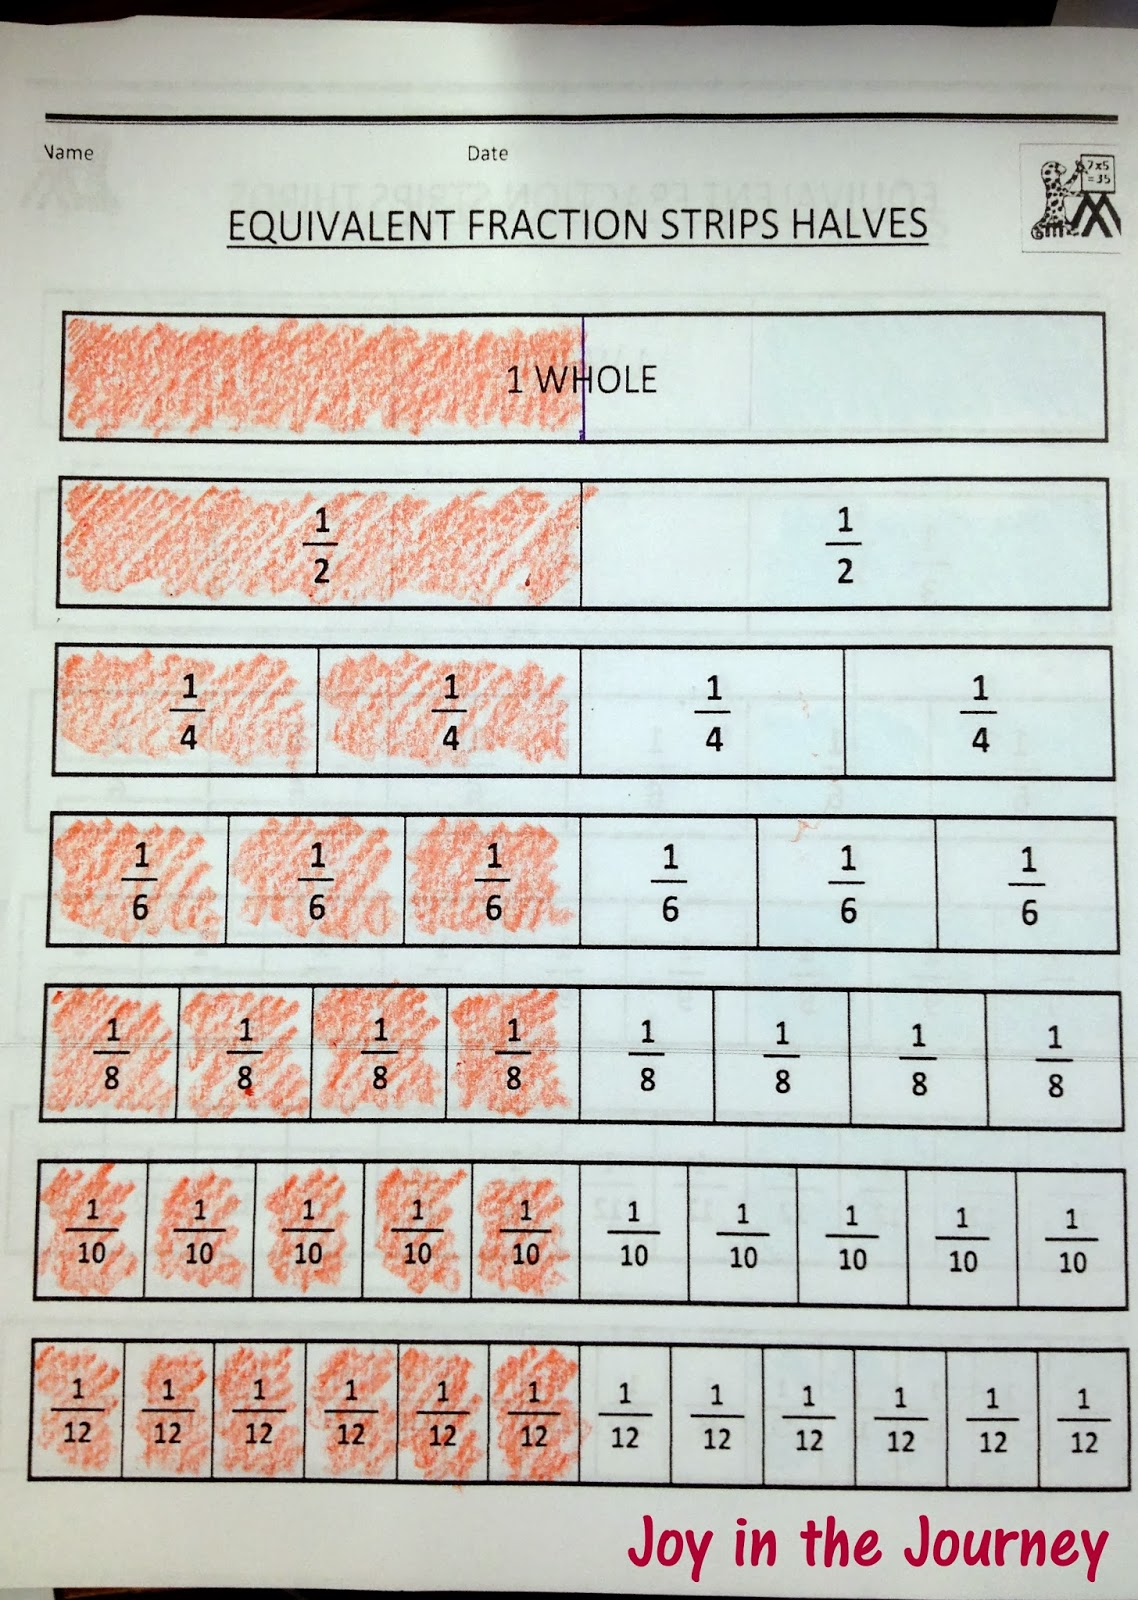 Name Date
7x5
=35
EQUIVALENT FRACTION STRIPS HALVES
1 WHOLE
1/2 1/2
1/4 1/4 1/4 1/4
1/6 1/6 1/6 1/6 1/6 1/6
1/8 1/8 1/8 1/8 1/8 1/8 1/8 1/8
1/10 1/10 1/10 1/10 1/10 1/10 1/10 1/10 1/10 1/10
1/12 1/12 1/12 1/12 1/12 1/12 1/12 1/12 1/12 1/12 1/12 1/12
Joy in the Journey